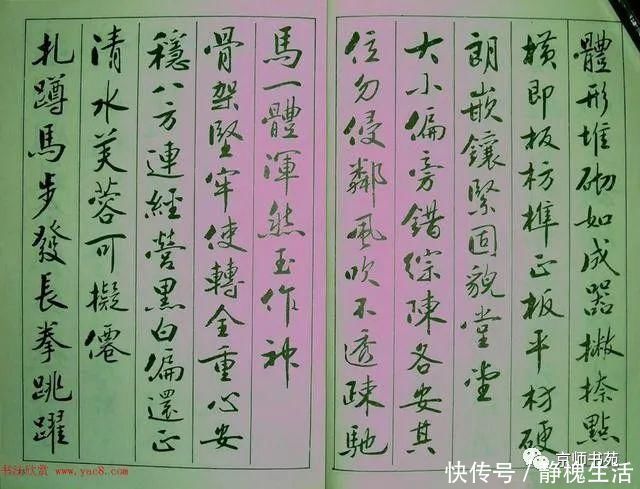 體形堆砌如成器撇捺點
橫即板枋榫正板平材硬
朗嵌鑲緊固貌堂堂
大小偏旁錯綜陳各安其
位勿侵鄰風吹不透疎馳
馬一體渾然玉作神
骨架堅牢使轉全重心安
穩八方連經營黑白偏還正
清水芙蓉可擬僊
扎蹲馬步發長拳跳躍
书法欣赏 www.yac8.com
京师书苑
快传号/静槐生活